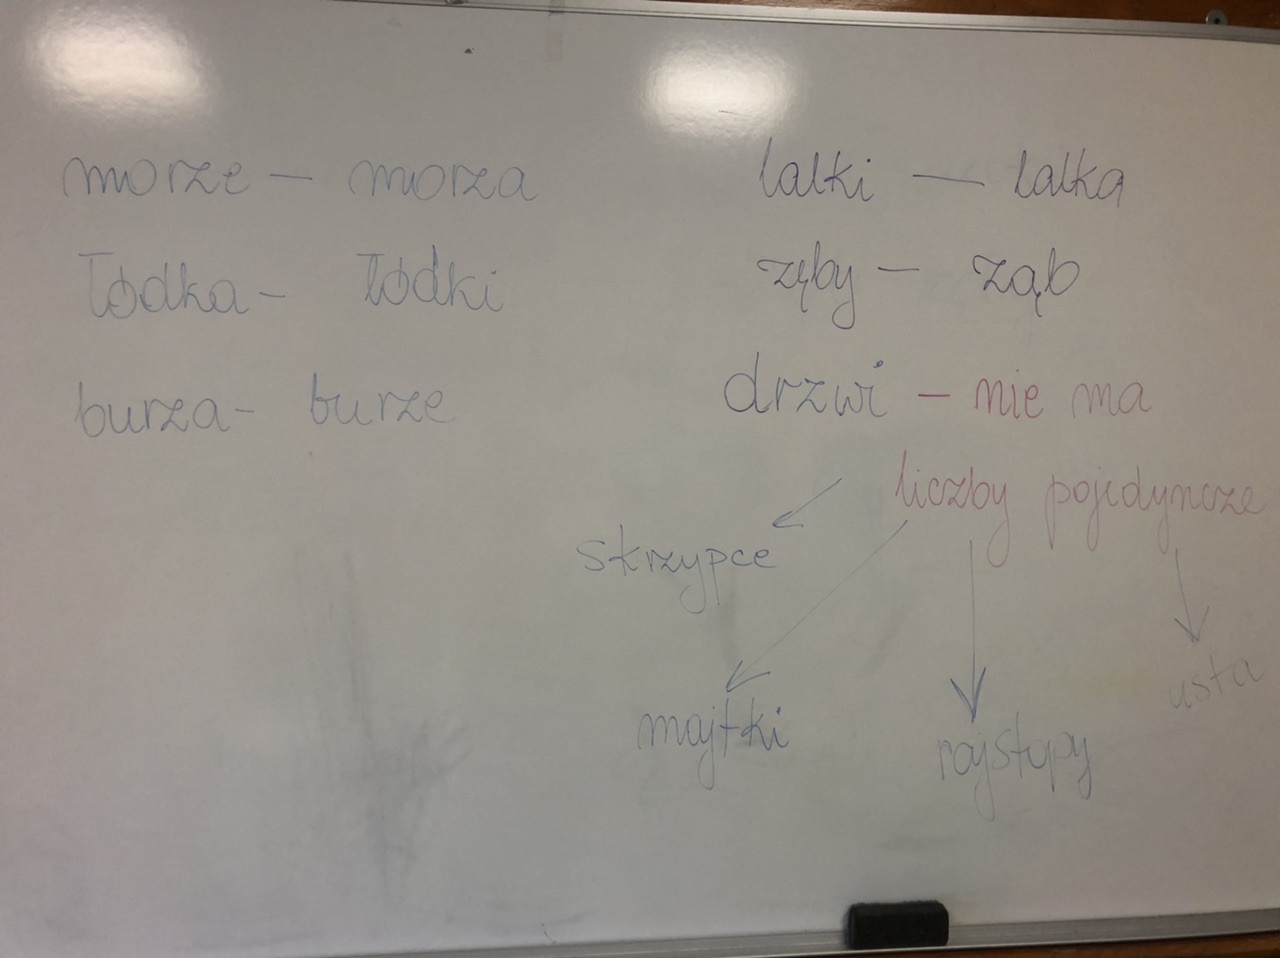 morze – morza
łódka – łódki
burza – burze
lalki – lalka
zęby – ząb
drzwi – nie ma
liczby pojedyncze
skrzypce
majtki
rajstopy
usta